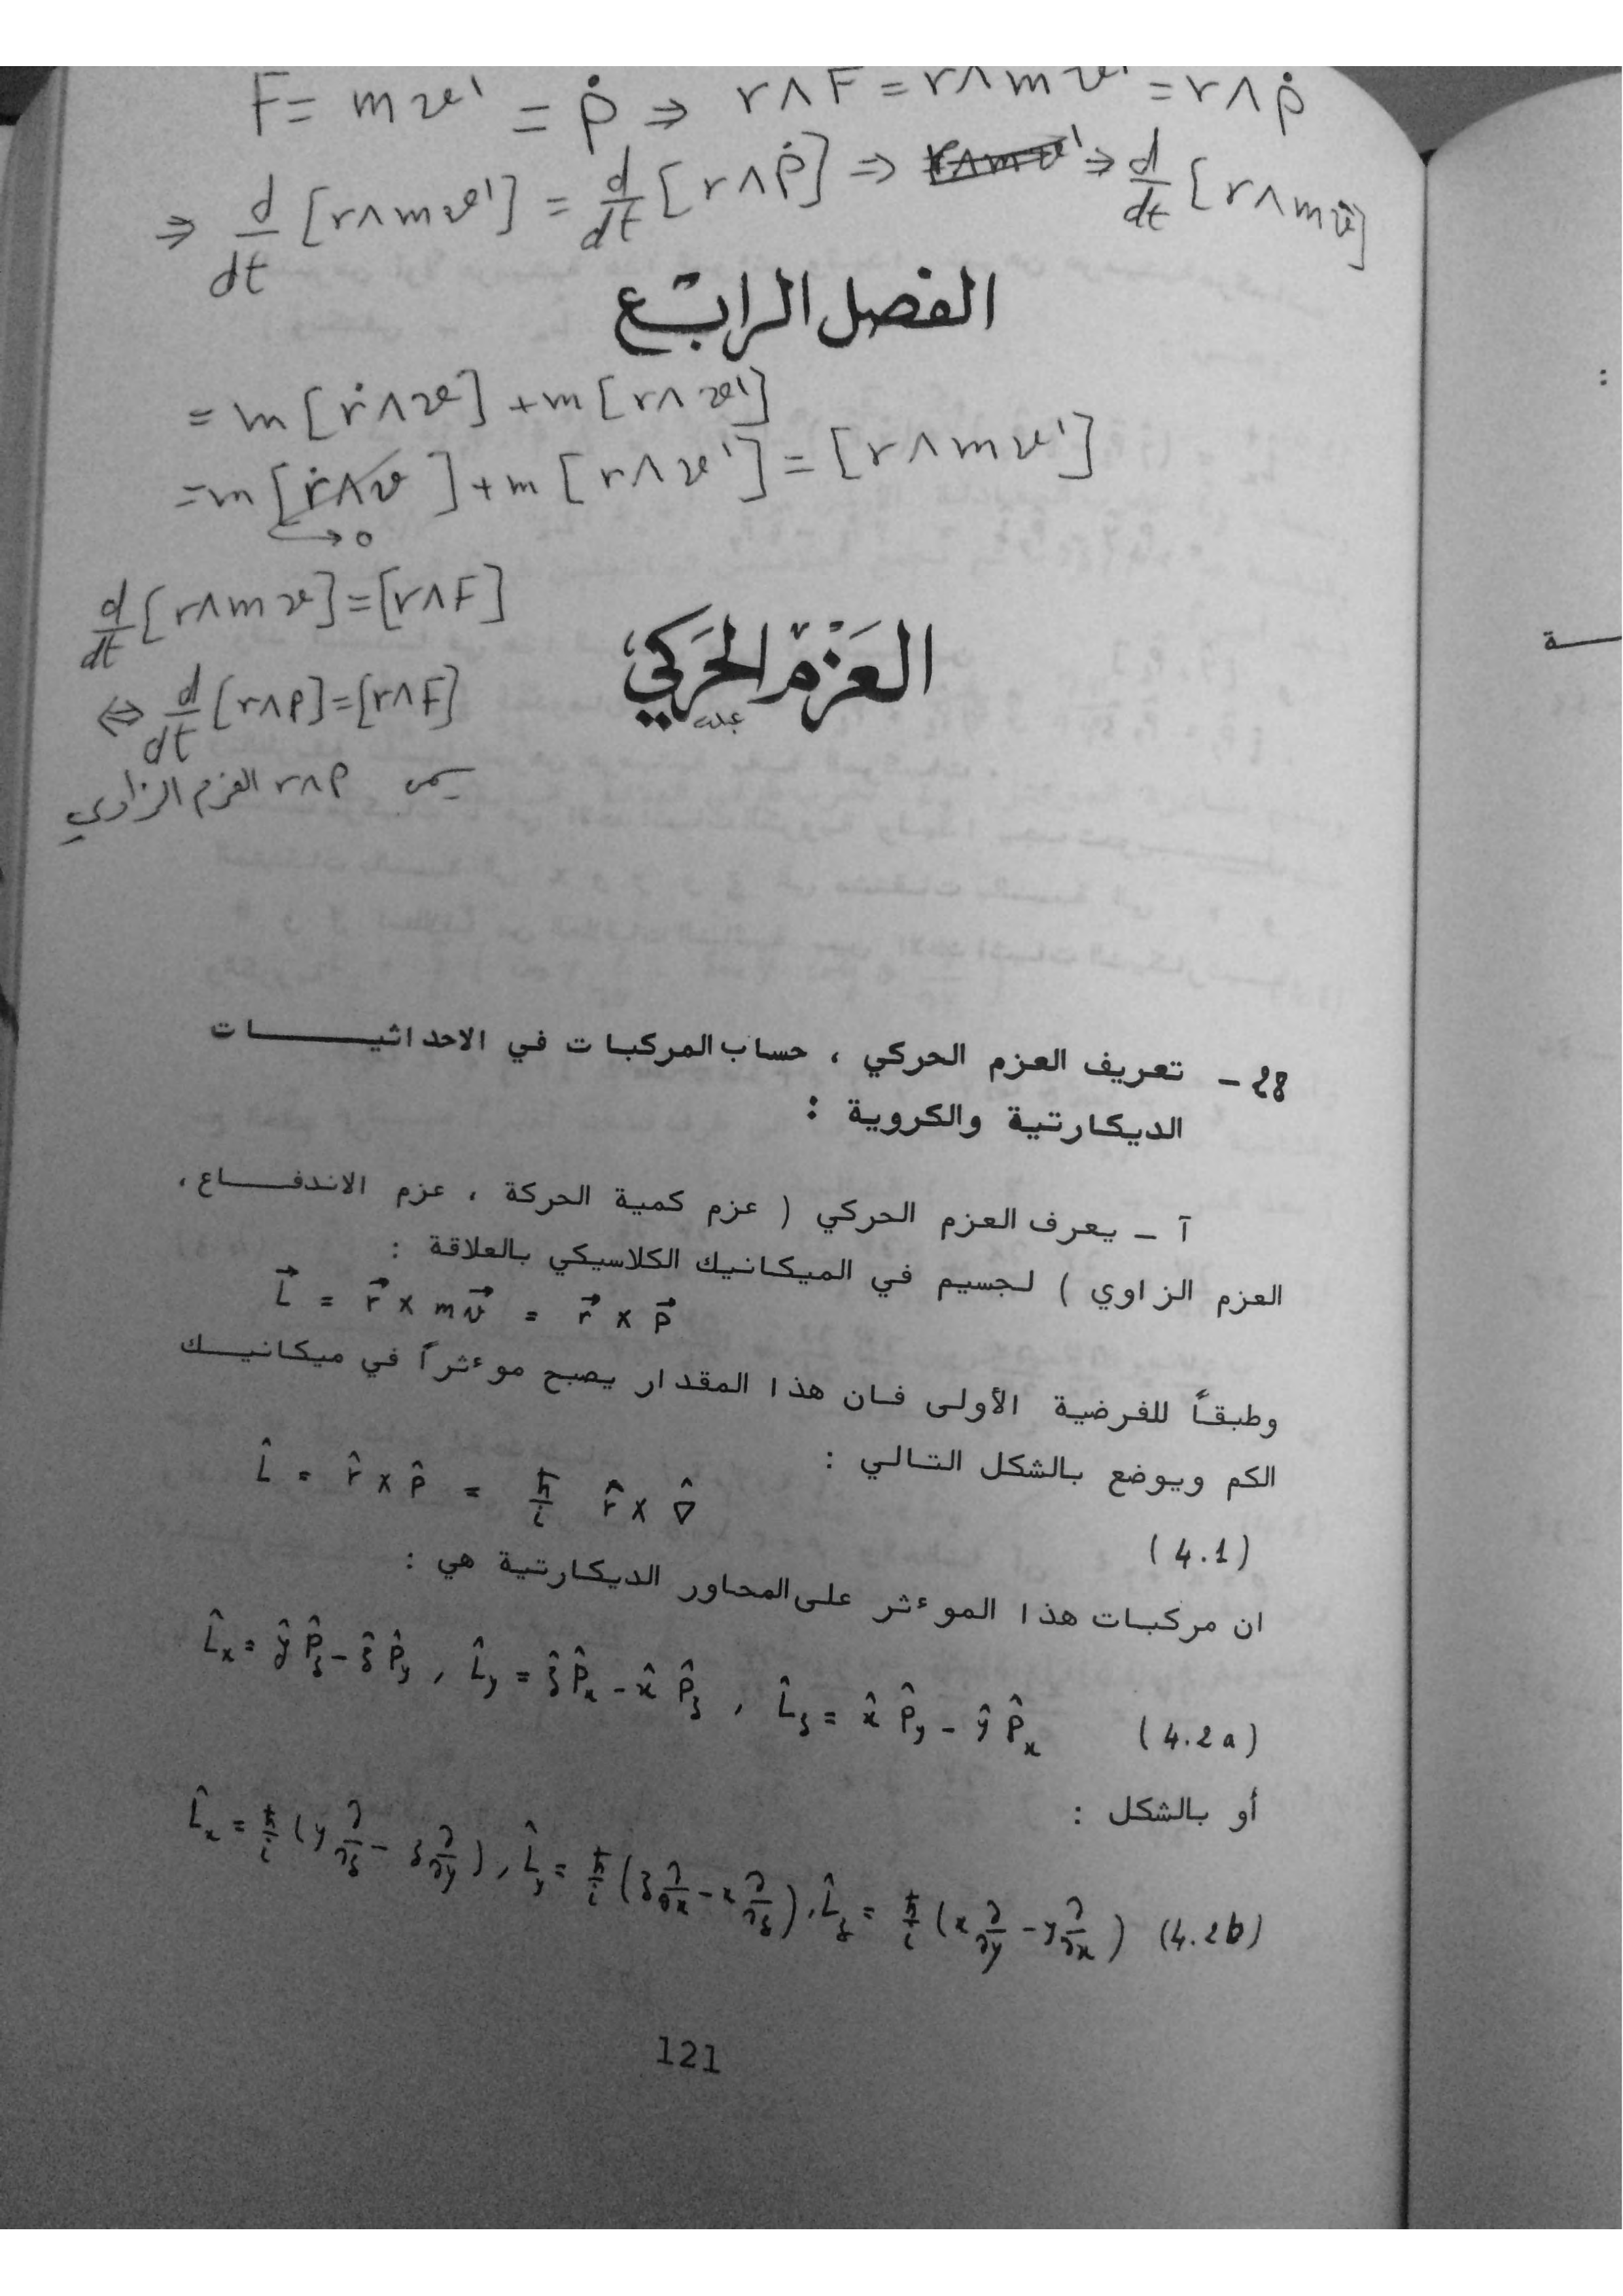 F = m v' = ṗ ⇒ r ∧ F = r ∧ m v' = r ∧ ṗ
⇒ d/dt [r ∧ m v'] = d/dt [r ∧ ṗ] ⇒ ⇒ d/dt [r ∧ m v̇]
الفصل الرابع
= m [ṙ ∧ v] + m [r ∧ v']
= m [ṙ ∧ v] + m [r ∧ v'] = [r ∧ m v']
→ 0
d/dt [r ∧ m v] = [r ∧ F]
العَزْم الحَرَكي
⇔ d/dt [r ∧ p] = [r ∧ F]
يسمى r ∧ p العزم الزاوي
28 - تعريف العزم الحركي ، حساب المركبات في الاحداثيـــــات
الديكارتية والكروية :
آ - يعرف العزم الحركي ( عزم كمية الحركة ، عزم الاندفـــاع ،
العزم الزاوي ) لجسيم في الميكانيك الكلاسيكي بالعلاقة :
L⃗ = r⃗ x m v⃗ = r⃗ x p⃗
وطبقاً للفرضية الأولى فان هذا المقدار يصبح موءثراً في ميكانيــك
الكم ويوضع بالشكل التالي :
L̂ = r̂ x p̂ = ħ/i r̂ x ∇̂ (4.1)
ان مركبات هذا الموءثر على المحاور الديكارتية هي :
L̂x = ŷ P̂z - ẑ P̂y , L̂y = ẑ P̂x - x̂ P̂z , L̂z = x̂ P̂y - ŷ P̂x (4.2a)
أو بالشكل :
L̂x = ħ/i (y ∂/∂z - z ∂/∂y) , L̂y = ħ/i (z ∂/∂x - x ∂/∂z) , L̂z = ħ/i (x ∂/∂y - y ∂/∂x) (4.2b)
121